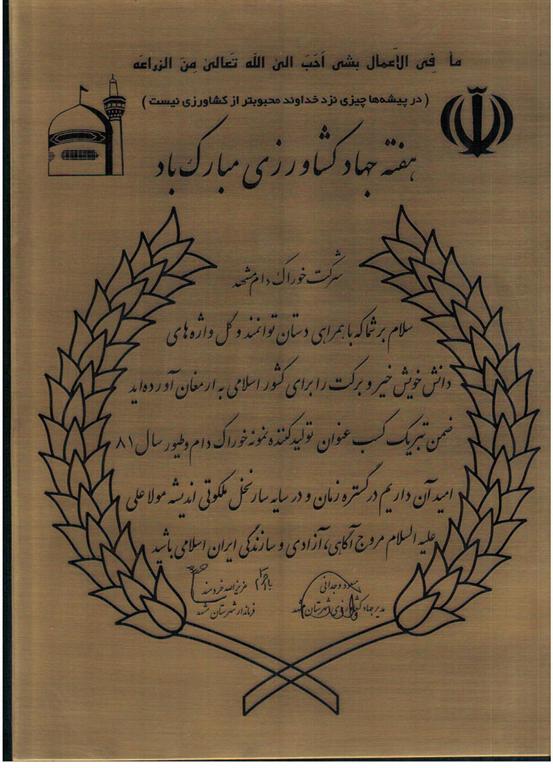 ما فِی الاَعمال بشی اَحَبَ الیَ الله تَعالیٰ مِنَ الزراعَه
( در پیشه‌ها چیزی نزد خداوند محبوبتر از کشاورزی نیست )
هفته جهاد کشاورزی مبارک باد
شرکت خوراک دام مشهد
سلام بر شما که با همرای دستان توانمند و گل واژه های
دانش خویش خیر و برکت را برای کشور اسلامی به ارمغان آورده‌اید
ضمن تبریک کسب عنوان تولید کننده نمونه خوراک دام و طیور سال ۸۱
امید آن داریم در گستره زمان و در سایه سار نخل ملکوتی اندیشه مولا علی
علیه السلام مروج آگاهی، آزادی و سازندگی ایران اسلامی باشید
مسعود وجدانی
مدیر جهاد کشاورزی شهرستان مشهد
عزیزالله خردمند
فرماندار شهرستان مشهد